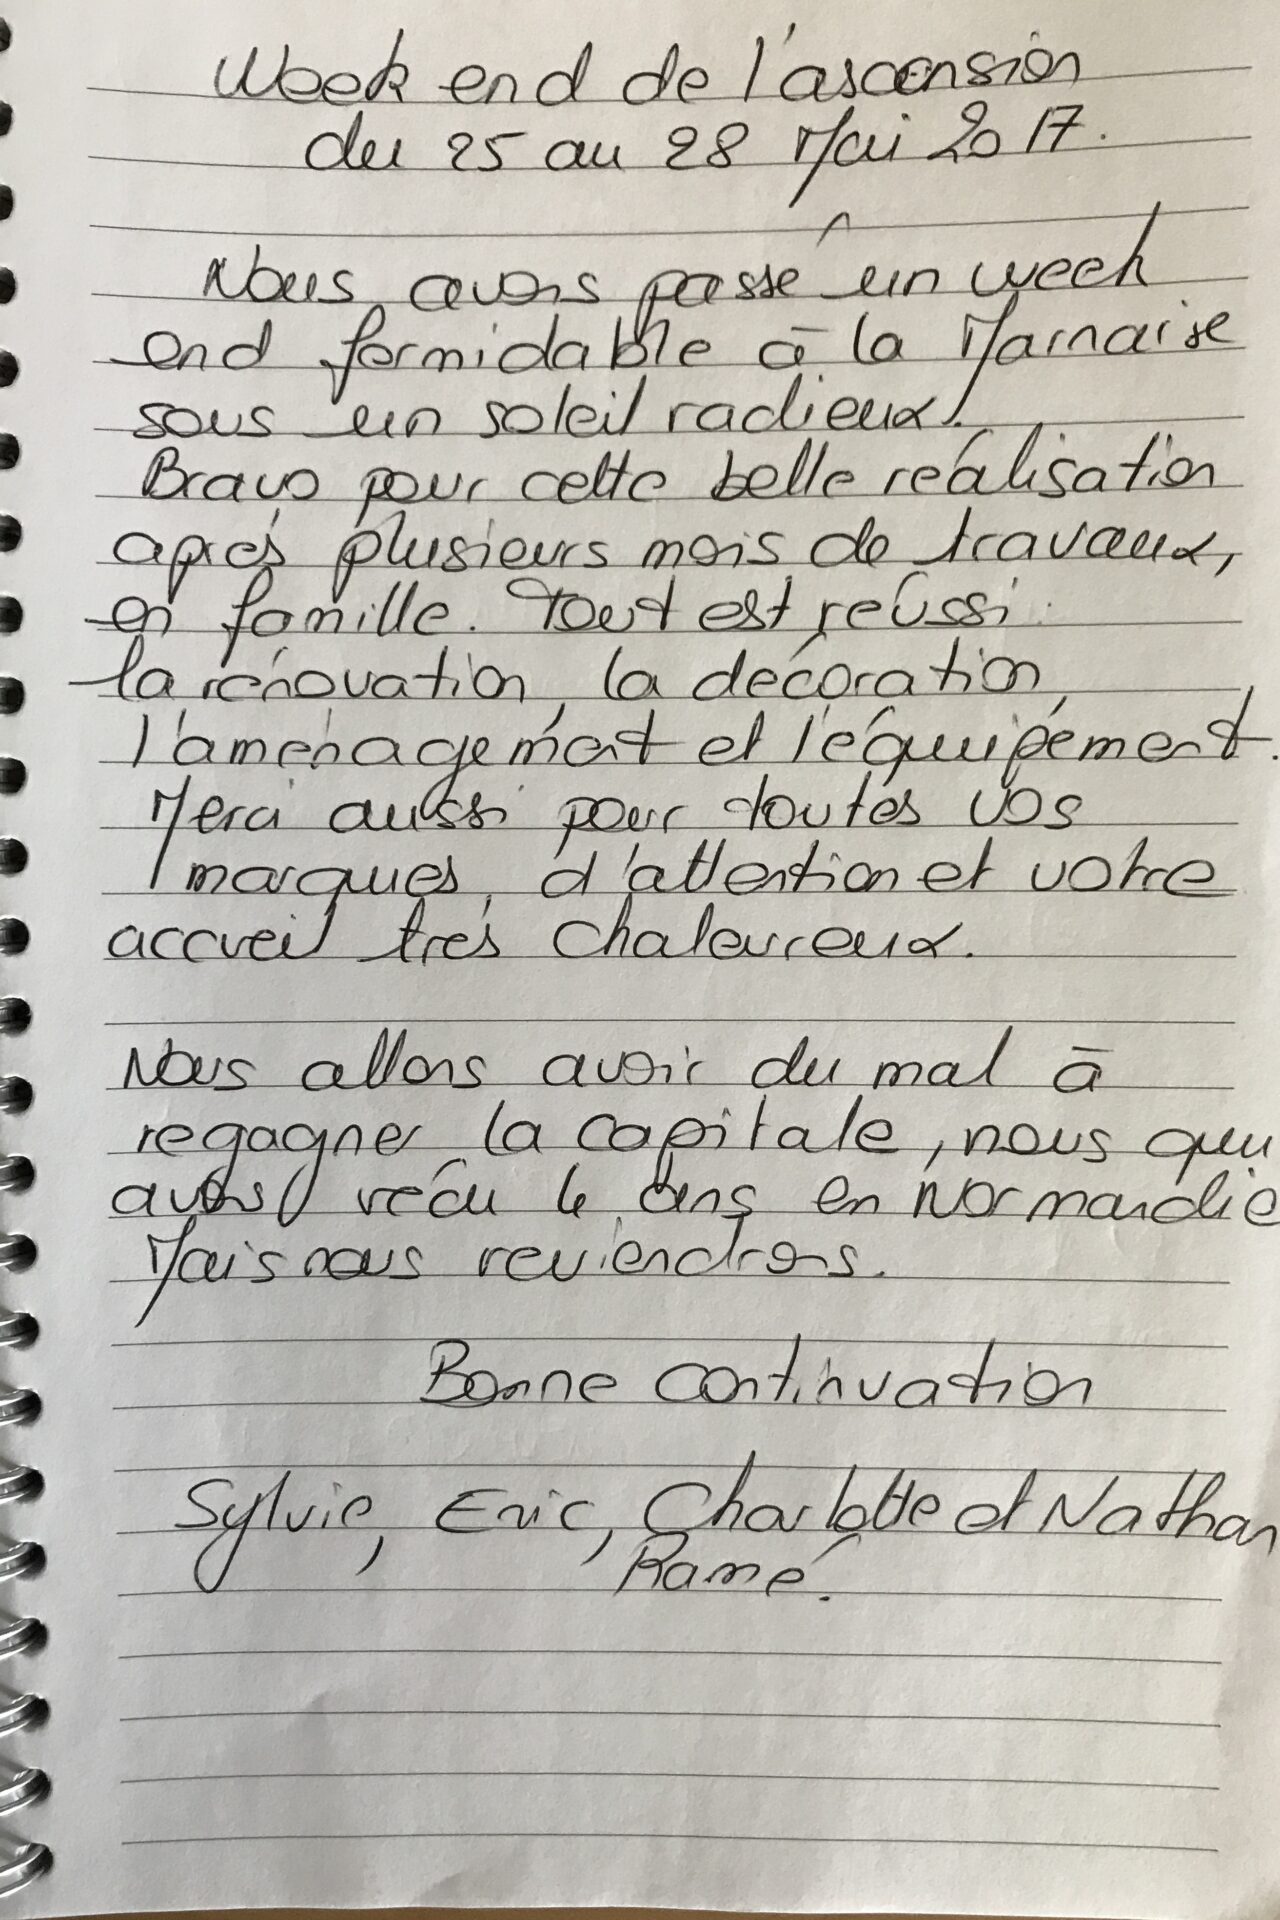 Week end de l'ascension
du 25 au 28 Mai 2017.
Nous avons passé un week
end formidable à la Marnaise
sous un soleil radieux.
Bravo pour cette belle réalisation
après plusieurs mois de travaux,
en famille. Tout est réussi :
la rénovation, la décoration,
l'aménagement et l'équipement.
Merci aussi pour toutes vos
marques d'attention et votre
accueil très chaleureux.
Nous allons avoir du mal à
regagner la capitale, nous qui
avons vécu 6 ans en Normandie
Mais nous reviendrons.
Bonne continuation
Sylvie, Eric, Charlotte et Nathan
Ramé.